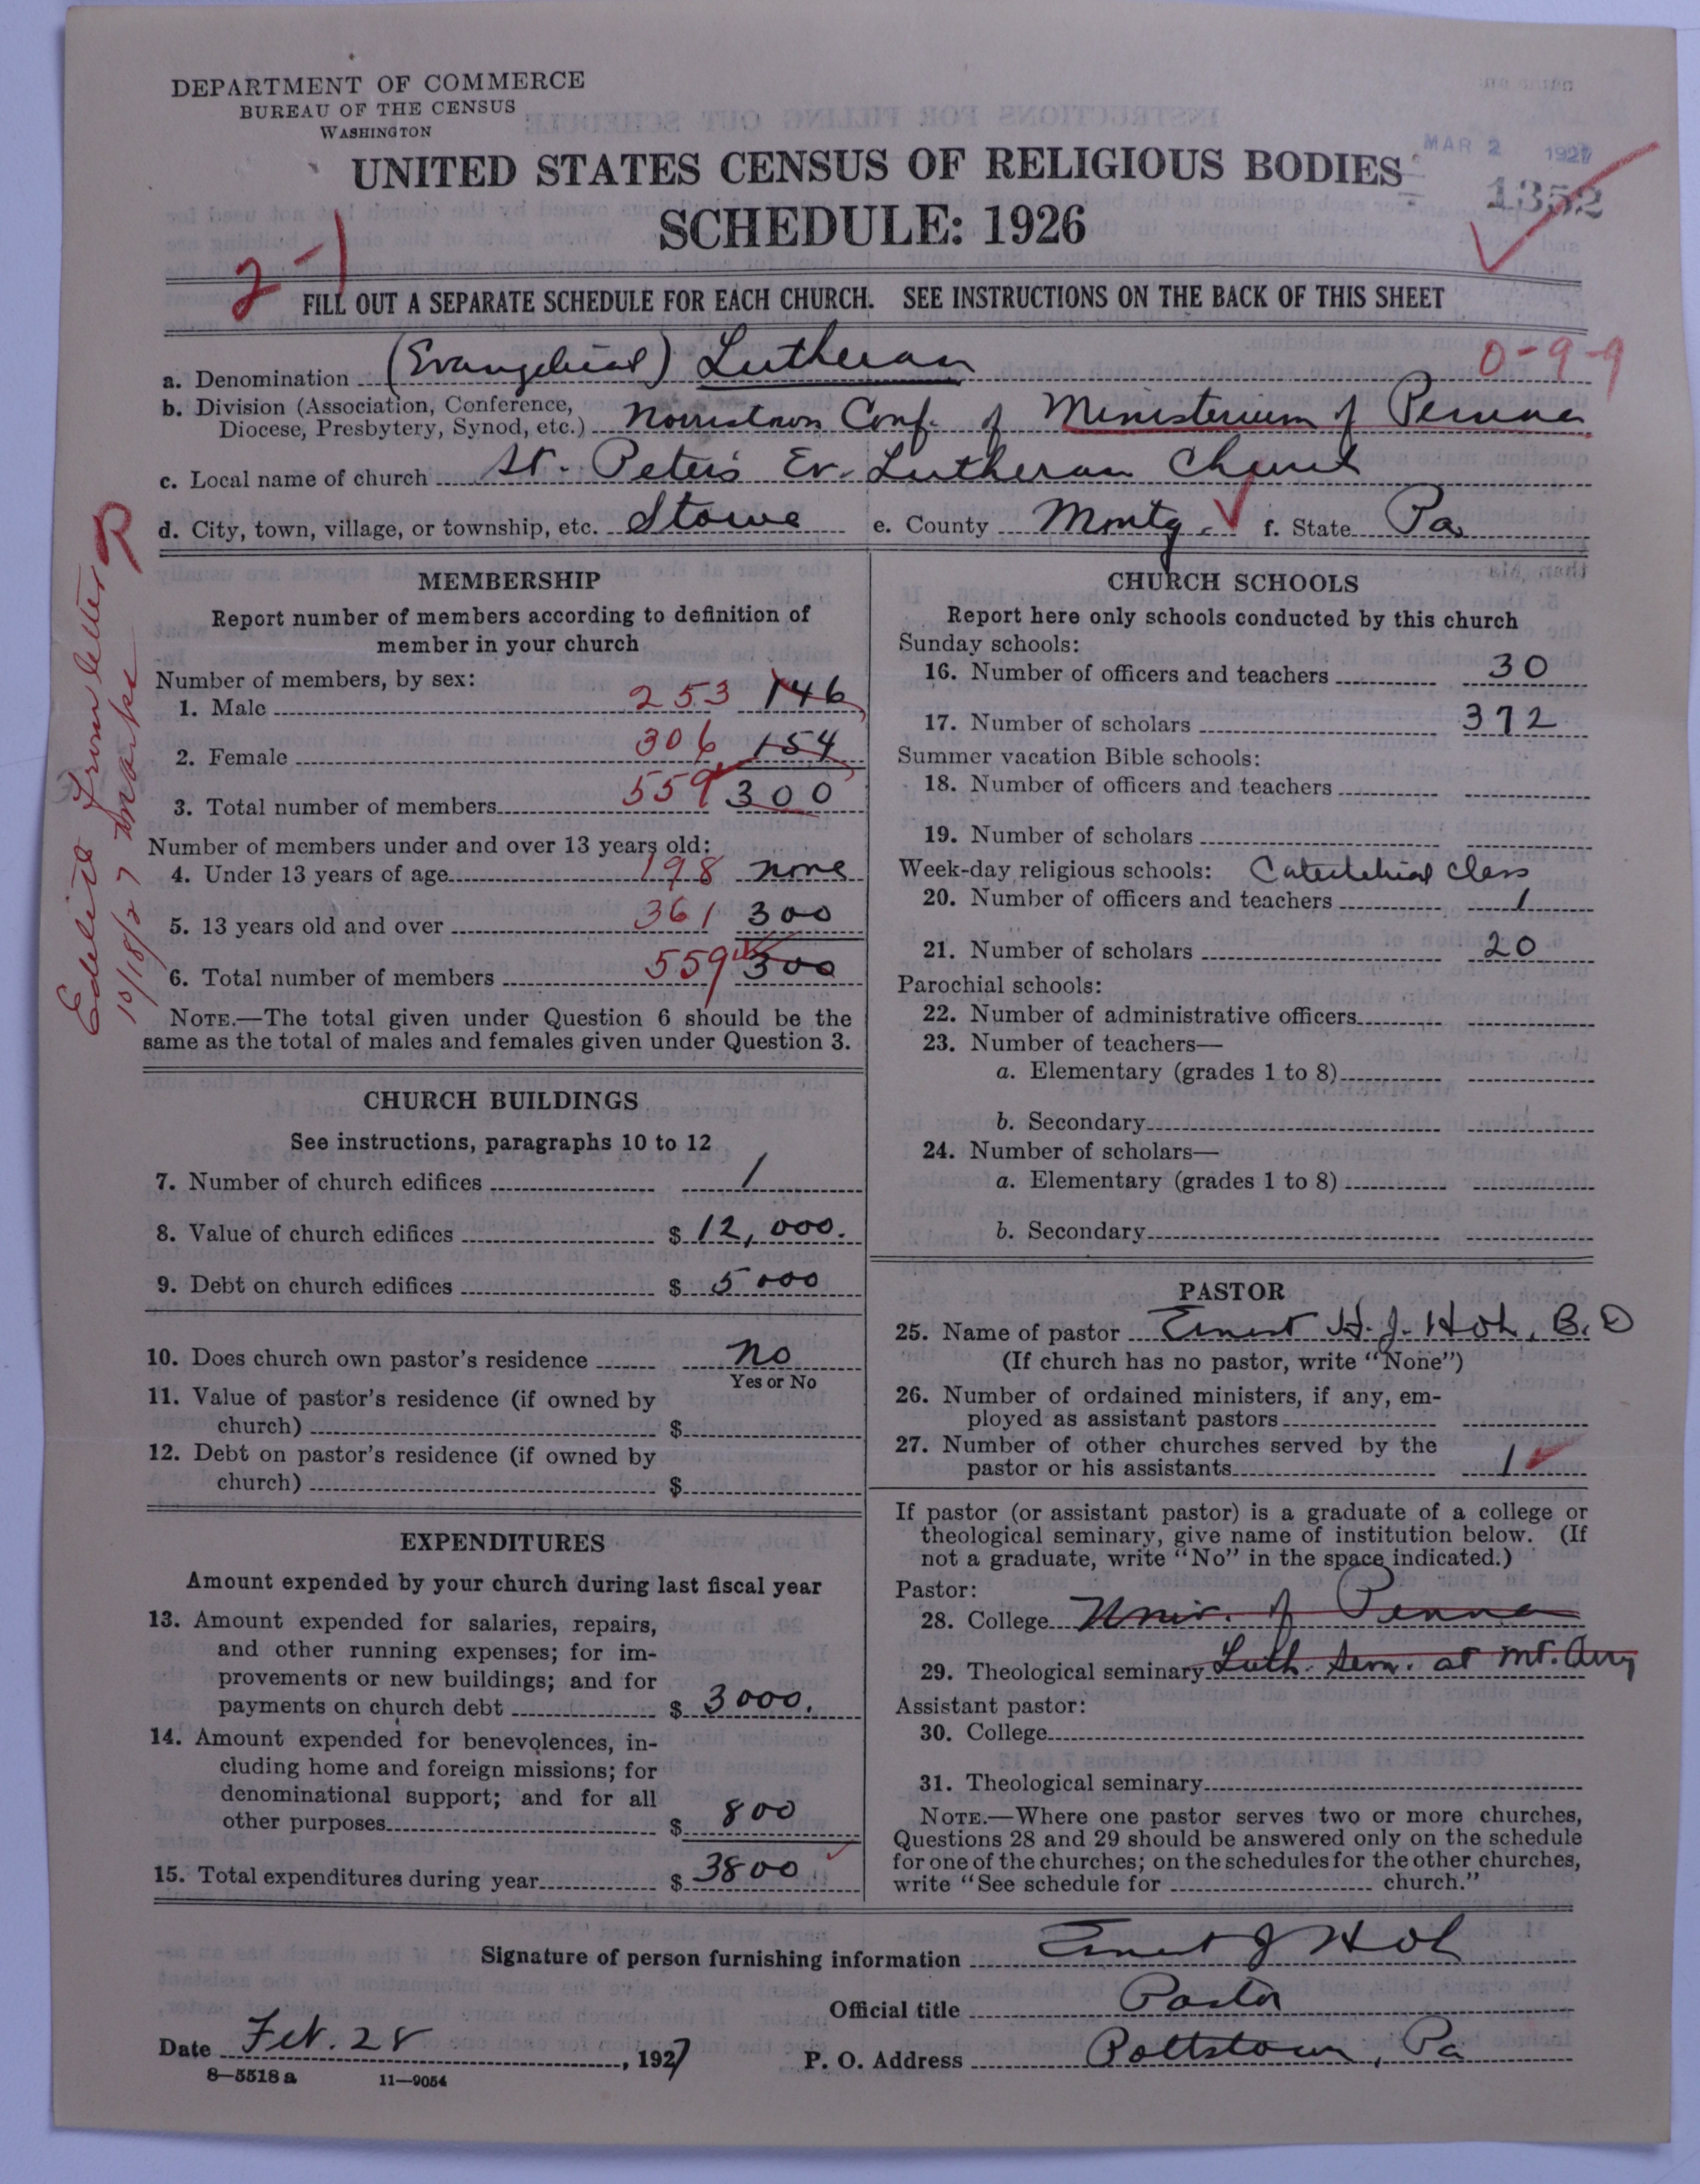 DEPARTMENT OF COMMERCE
BUREAU OF THE CENSUS
WASHINGTON
MAR 2 1927
1352
UNITED STATES CENSUS OF RELIGIOUS BODIES
SCHEDULE: 1926
2-1
FILL OUT A SEPARATE SCHEDULE FOR EACH CHURCH. SEE INSTRUCTIONS ON THE BACK OF THIS SHEET
0-9-9
a. Denomination (Evangelical) Lutheran
b. Division (Association, Conference, Diocese, Presbytery, Synod, etc.) Norristown Conf. of Ministerium of Penna
c. Local name of church St. Peter's Ev. Lutheran Church
d. City, town, village, or township, etc. Stowe e. County Montg. f. State Pa
Edited from letter
10/18/27
MEMBERSHIP
Report number of members according to definition of
member in your church
Number of members, by sex:
1. Male 253 146
2. Female 306 154
3. Total number of members 559 300
Number of members under and over 13 years old:
4. Under 13 years of age 198 none
5. 13 years old and over 361 300
6. Total number of members 559 300
NOTE.—The total given under Question 6 should be the
same as the total of males and females given under Question 3.
CHURCH BUILDINGS
See instructions, paragraphs 10 to 12
7. Number of church edifices 1
8. Value of church edifices $ 12,000.
9. Debt on church edifices $ 5000
10. Does church own pastor's residence no
Yes or No
11. Value of pastor's residence (if owned by
church) $
12. Debt on pastor's residence (if owned by
church) $
EXPENDITURES
Amount expended by your church during last fiscal year
13. Amount expended for salaries, repairs,
and other running expenses; for im-
provements or new buildings; and for
payments on church debt $ 3000.
14. Amount expended for benevolences, in-
cluding home and foreign missions; for
denominational support; and for all
other purposes $ 800
15. Total expenditures during year $ 3800
CHURCH SCHOOLS
Report here only schools conducted by this church
Sunday schools:
16. Number of officers and teachers 30
17. Number of scholars 372
Summer vacation Bible schools:
18. Number of officers and teachers
19. Number of scholars
Week-day religious schools: Catechetical class
20. Number of officers and teachers 1
21. Number of scholars 20
Parochial schools:
22. Number of administrative officers
23. Number of teachers—
a. Elementary (grades 1 to 8)
b. Secondary
24. Number of scholars—
a. Elementary (grades 1 to 8)
b. Secondary
PASTOR
25. Name of pastor Ernest H. J. Hoh, B. D
(If church has no pastor, write "None")
26. Number of ordained ministers, if any, em-
ployed as assistant pastors
27. Number of other churches served by the
pastor or his assistants 1
If pastor (or assistant pastor) is a graduate of a college or
theological seminary, give name of institution below. (If
not a graduate, write "No" in the space indicated.)
Pastor:
28. College Univ. of Penna
29. Theological seminary Luth. Sem. at Mt. Airy
Assistant pastor:
30. College
31. Theological seminary
NOTE.—Where one pastor serves two or more churches,
Questions 28 and 29 should be answered only on the schedule
for one of the churches; on the schedules for the other churches,
write "See schedule for church."
Signature of person furnishing information Ernest J Hoh
Official title Pastor
Date Feb. 28, 1927 P. O. Address Pottstown, Pa
8—5518 a 11—9054